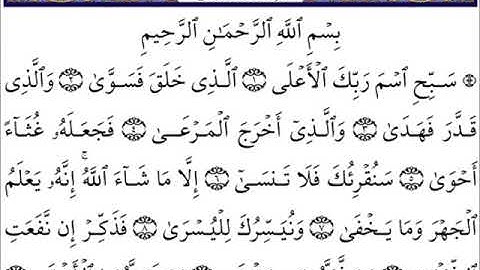 بِسْمِ ٱللَّهِ ٱلرَّحْمَـٰنِ ٱلرَّحِيمِ
۞ سَبِّحِ ٱسْمَ رَبِّكَ ٱلْأَعْلَى ۝١ ٱلَّذِى خَلَقَ فَسَوَّىٰ ۝٢ وَٱلَّذِى
قَدَّرَ فَهَدَىٰ ۝٣ وَٱلَّذِىٓ أَخْرَجَ ٱلْمَرْعَىٰ ۝٤ فَجَعَلَهُۥ غُثَآءً
أَحْوَىٰ ۝٥ سَنُقْرِئُكَ فَلَا تَنسَىٰٓ ۝٦ إِلَّا مَا شَآءَ ٱللَّهُ ۚ إِنَّهُۥ يَعْلَمُ
ٱلْجَهْرَ وَمَا يَخْفَىٰ ۝٧ وَنُيَسِّرُكَ لِلْيُسْرَىٰ ۝٨ فَذَكِّرْ إِن نَّفَعَتِ